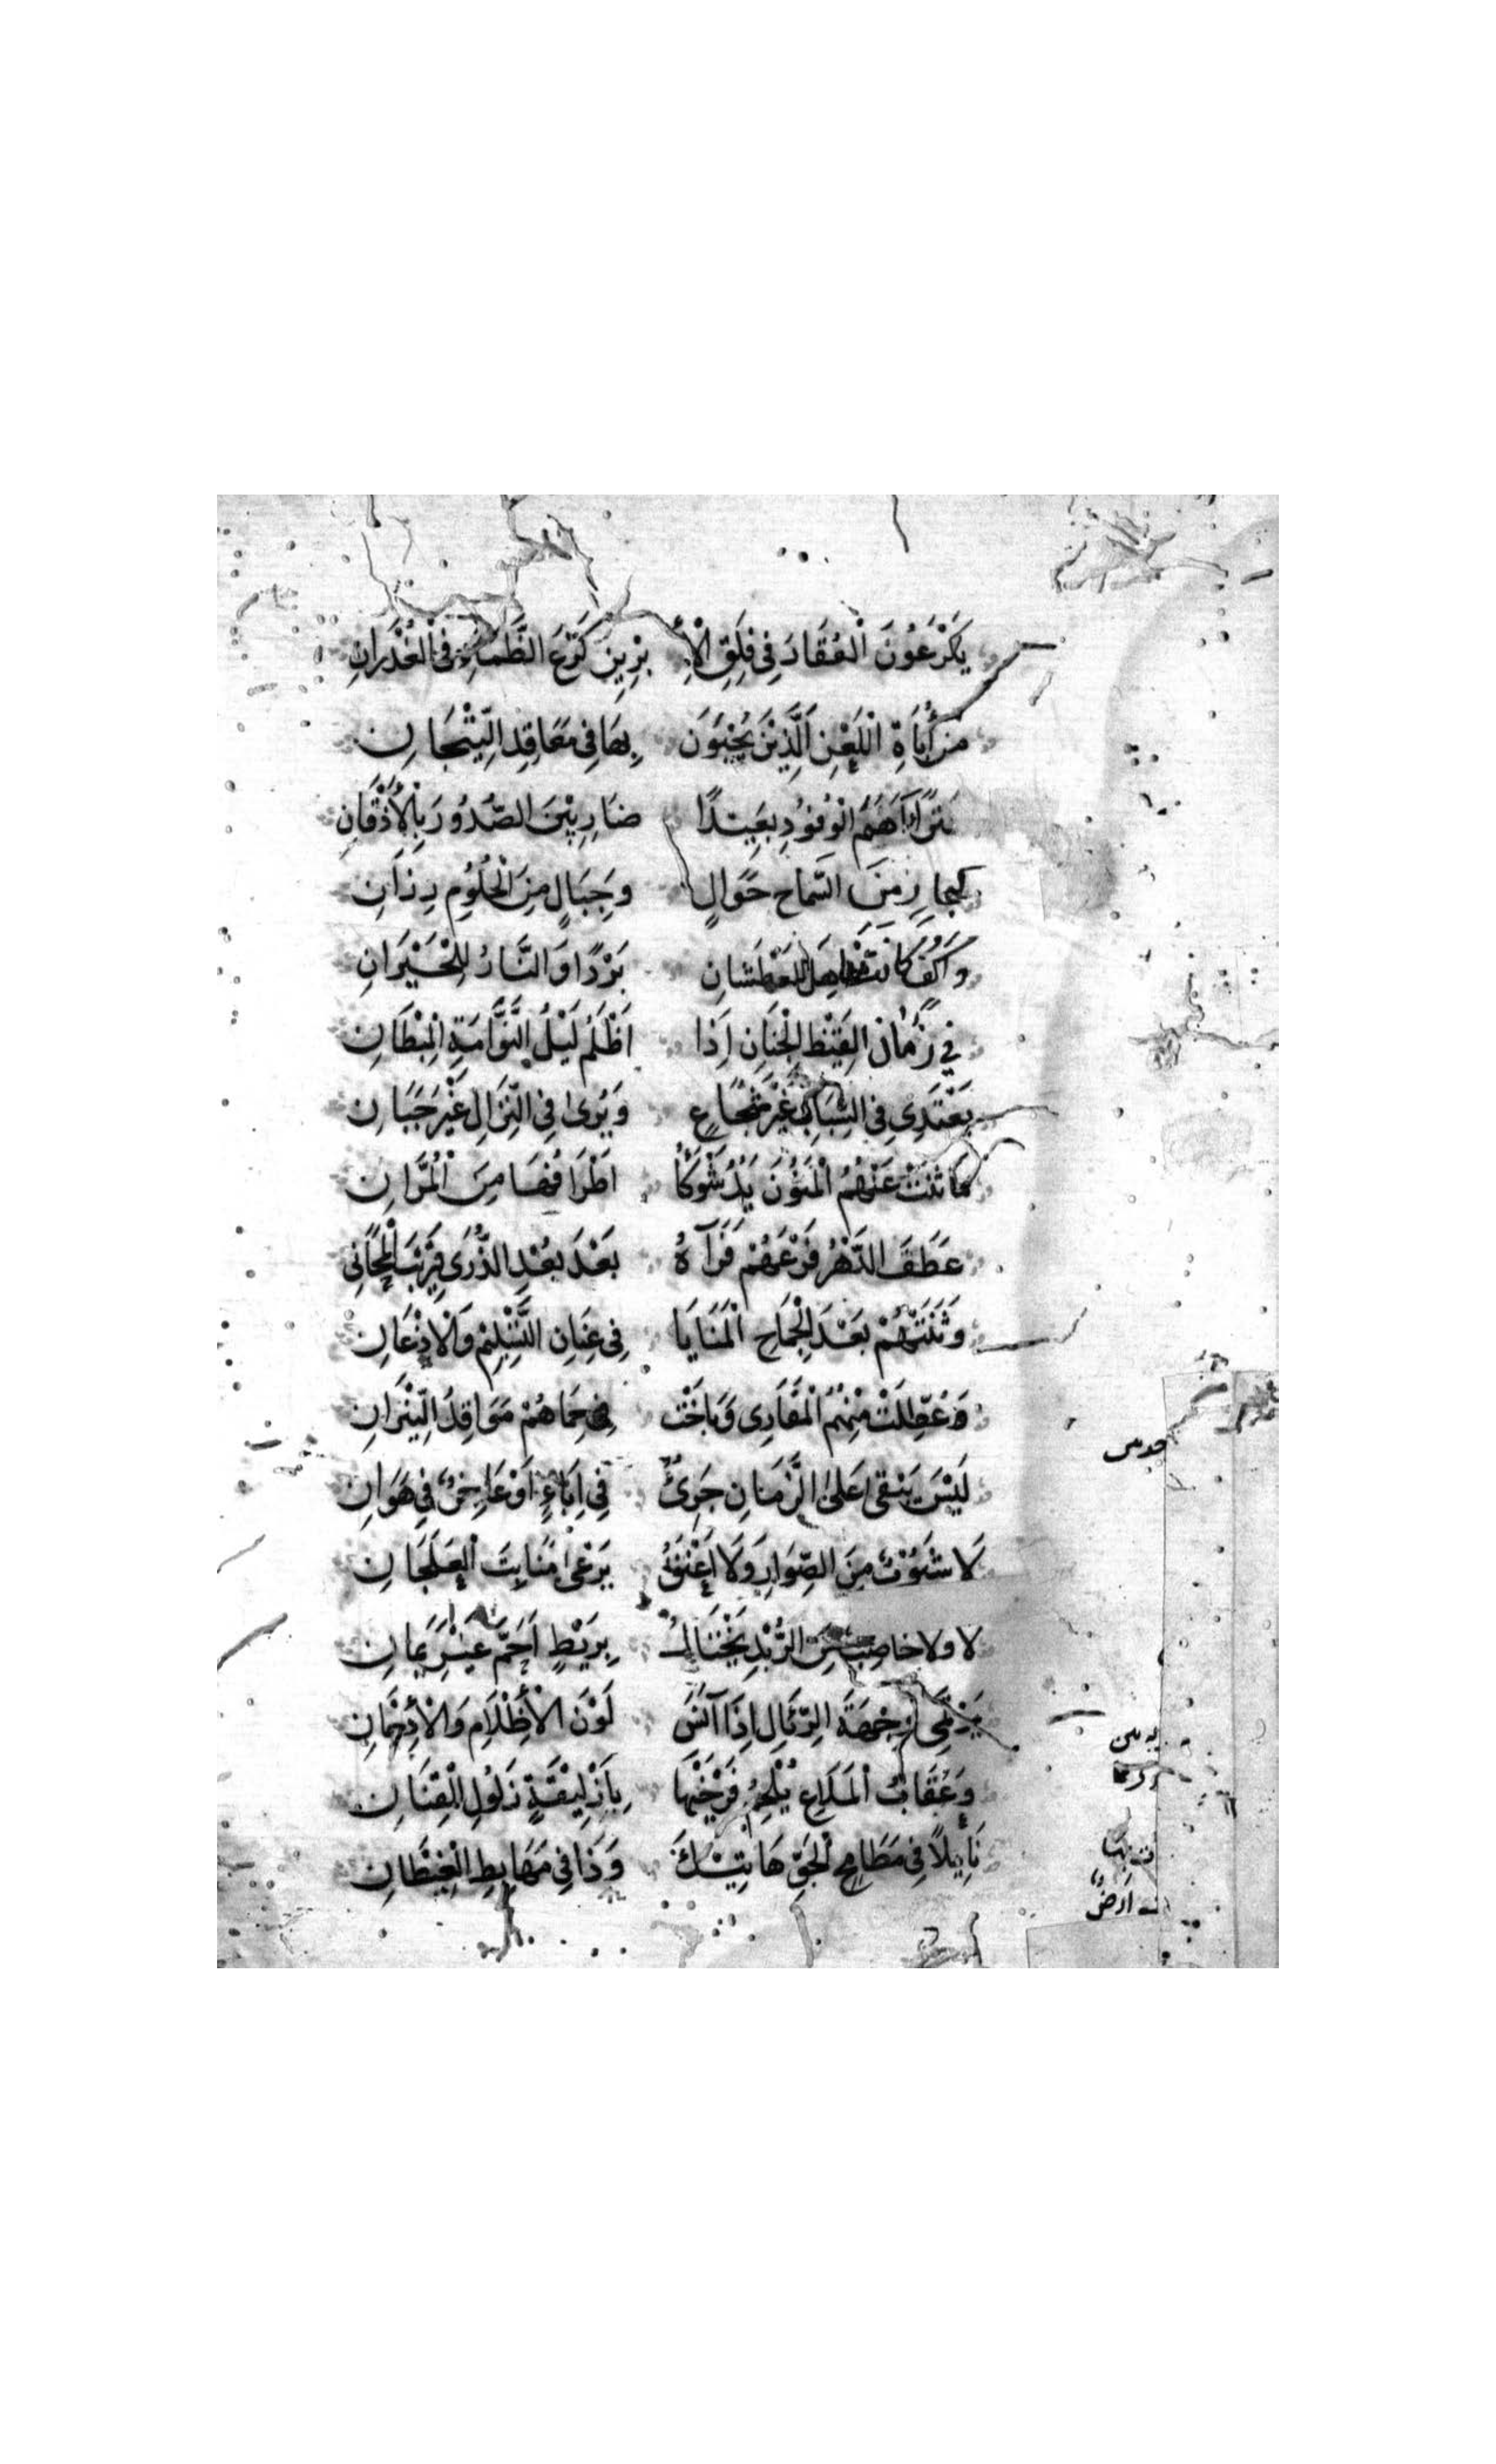 يَكْرَعُونَ الْعُقَارَ فِي فِلَقِ الْإِ بْرِيزِ كَرْعَ الظِّمَاءِ فِي الْغُدْرَانِ
مِنْ أُبَاةِ اللَّعْنِ الَّذِينَ يُحَيَّوْنَ بِهَا فِي مَعَاقِدِ التِّيْجَانِ
تَتَرَاءَاهُمُ الْوُفُودُ بَعِيدًا ضَارِبِينَ الصُّدُورَ بِالْأَذْقَانِ
مِنَ السَّمَاحِ حَوَالٍ وَجِبَالٍ مِنَ الْحُلُومِ رِزَانِ
وَأَكُفٍّ لِلْعَطْشَانِ بَرْدًا وَالنَّارُ لِلْحَيْرَانِ
فِي الْجَنَانِ إِذَا أَظْلَمَ لَيْلُ النَّوَّامَةِ الْمِبْطَانِ
يَغْتَدِي فِي السِّبَابِ غَيْرَ شُجَاعٍ وَيُرَى فِي النِّزَالِ غَيْرَ جَبَانِ
مَا ثَنَتْ عَنْهُمُ الْمَنُونَ يَدٌ شَوْكَاءُ أَطْرَافُهَا مِنَ الْمُرَّانِ
عَطَفَ الدَّهْرُ فَرْعَهُمْ فَرَآهُ بَعْدَ بُعْدِ الذُّرَى قَرِيبَ الْمَجَانِي
وَثَنَتْهُمْ بَعْدَ الْجِمَاحِ الْمَنَايَا فِي عِنَانِ التَّسْلِيمِ وَالْإِذْعَانِ
وَعُطِّلَتْ مِنْهُمُ الْمَقَارِي وَبَاخَتْ فِي حِمَاهُمْ مَوَاقِدُ النِّيرَانِ
لَيْسَ يَبْقَى عَلَى الزَّمَانِ جَرِيءٌ فِي إِبَاءٍ أَوْ عَاجِزٌ فِي هَوَانِ
لَا شَبُوبٌ مِنَ الصِّوَارِ وَلَا أَعْنَقُ يَرْعَى مَنَابِتَ الْعَلَجَانِ
لَا وَلَا خَاضِبٌ مِنَ الرُّبْدِ يَخْتَالُ بِرَيْطٍ أَحَمَّ غَيْرِ يَمَانِ
يَرْتَمِي وِجْهَةَ الرِّئَالِ إِذَا آنَسَ لَوْنَ الْأَظْلَامِ وَالْأَدْخَانِ
وَعُقَابُ الْمَلَاعِ تُلْحِمُ فَرْخَيْهَا بِإِزْلِيقَةٍ زَلُولِ الْقِنَانِ
نَائِلًا فِي مَطَامِحِ الْجَوِّ هَاتِيكَ وَذَا فِي مَهَابِطِ الْغِيطَانِ